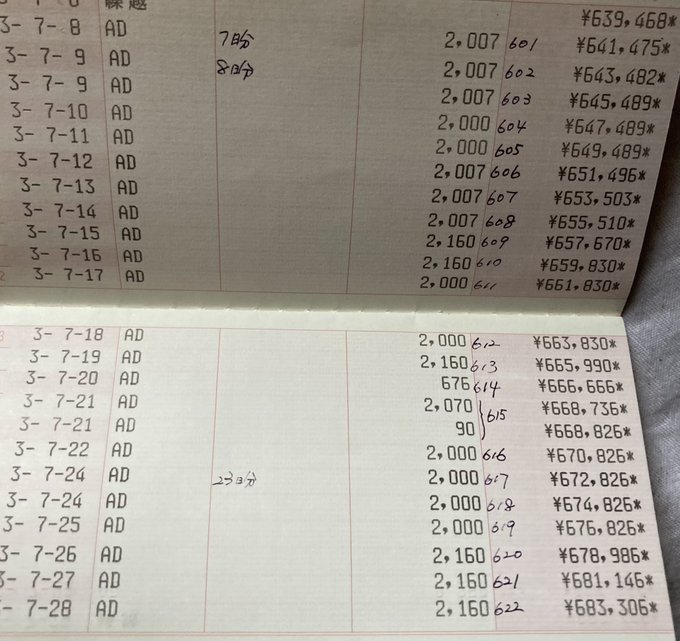 繰越 ¥639,468*
3- 7- 8 AD 7日分 2,007 601 ¥641,475*
3- 7- 9 AD 8日分 2,007 602 ¥643,482*
3- 7- 9 AD 2,007 603 ¥645,489*
3- 7-10 AD 2,000 604 ¥647,489*
3- 7-11 AD 2,000 605 ¥649,489*
3- 7-12 AD 2,007 606 ¥651,496*
3- 7-13 AD 2,007 607 ¥653,503*
3- 7-14 AD 2,007 608 ¥655,510*
3- 7-15 AD 2,160 609 ¥657,670*
3- 7-16 AD 2,160 610 ¥659,830*
3- 7-17 AD 2,000 611 ¥661,830*
3- 7-18 AD 2,000 612 ¥663,830*
3- 7-19 AD 2,160 613 ¥665,990*
3- 7-20 AD 676 614 ¥666,666*
3- 7-21 AD 2,070 615 ¥668,736*
3- 7-21 AD 90 ¥668,826*
3- 7-22 AD 2,000 616 ¥670,826*
3- 7-24 AD 23日分 2,000 617 ¥672,826*
3- 7-24 AD 2,000 618 ¥674,826*
3- 7-25 AD 2,000 619 ¥676,826*
3- 7-26 AD 2,160 620 ¥678,986*
3- 7-27 AD 2,160 621 ¥681,146*
- 7-28 AD 2,160 622 ¥683,306*